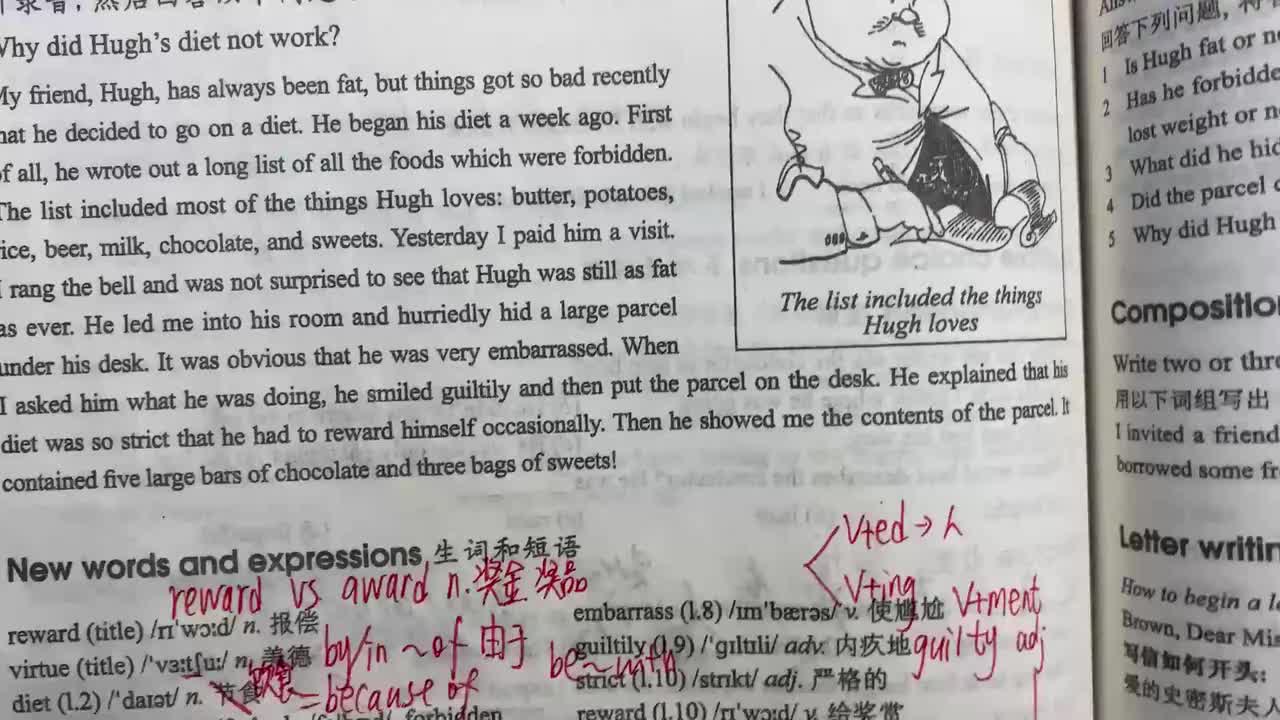 hy did Hugh's diet not work?
y friend, Hugh, has always been fat, but things got so bad recently
hat he decided to go on a diet. He began his diet a week ago. First
of all, he wrote out a long list of all the foods which were forbidden.
The list included most of the things Hugh loves: butter, potatoes,
ice, beer, milk, chocolate, and sweets. Yesterday I paid him a visit.
I rang the bell and was not surprised to see that Hugh was still as fat
as ever. He led me into his room and hurriedly hid a large parcel
under his desk. It was obvious that he was very embarrassed. When
I asked him what he was doing, he smiled guiltily and then put the parcel on the desk. He explained that his
diet was so strict that he had to reward himself occasionally. Then he showed me the contents of the parcel. It
contained five large bars of chocolate and three bags of sweets!
The list included the things
Hugh loves
New words and expressions 生词和短语
reward vs award n. 奖金 奖品
reward (title) /rɪ'wɔ:d/ n. 报偿
virtue (title) /'vɜ:tʃu:/ n. 美德
by/in ~ of 由于
diet (l.2) /'daɪət/ n. 节食
= because of
forbidden
V+ed → h
V+ing
V+ment
embarrass (l.8) /ɪm'bærəs/ v. 使尴尬
guiltily (l.9) /'gɪltɪli/ adv. 内疚地
guilty adj
be ~ with
strict (l.10) /strɪkt/ adj. 严格的
reward (l.10) /rɪ'wɔ:d/ v. 给奖赏
回答下列问题,
1 Is Hugh fat or n
2 Has he forbidde
lost weight or n
3 What did he hid
4 Did the parcel
5 Why did Hugh
Compositio
Write two or thr
用以下词组写出
I invited a friend
borrowed some fr
Letter writin
How to begin a l
Brown, Dear Mi
写信如何开头:
爱的史密斯夫人